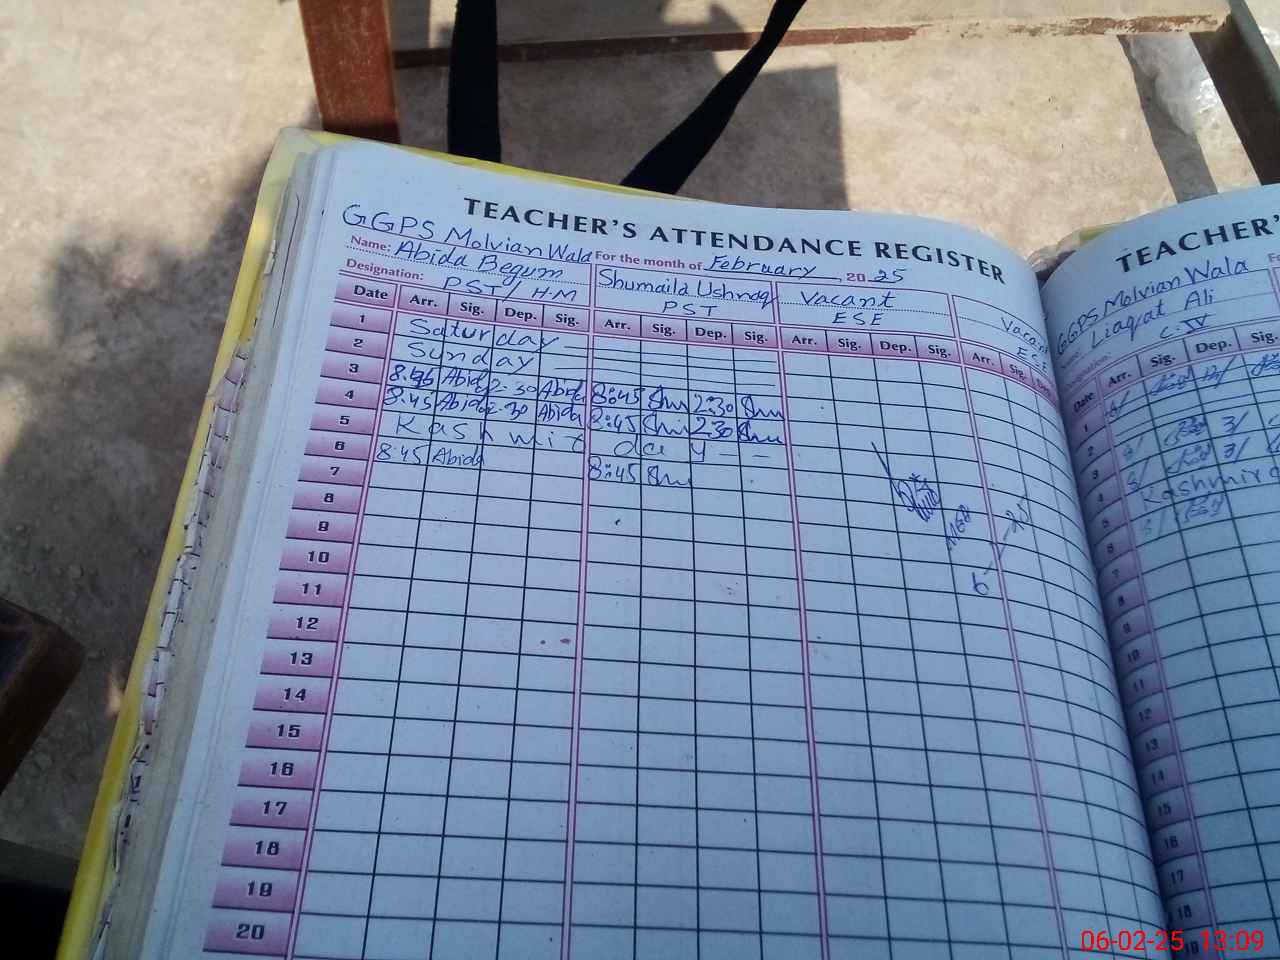 TEACHER'S ATTENDANCE REGISTER
GGPS Molvian Wala For the month of February, 2025
Name: Abida Begum Shumaila Ushnaq Vacant Vacant
Designation: PST/HM PST ESE ESE
Date Arr. Sig. Dep. Sig. Arr. Sig. Dep. Sig. Arr. Sig. Dep. Sig. Arr. Sig. Dep.
1 Saturday
2 Sunday
3 Abida 2.30 Abida 8:45 Shu 2:30 Shu
4 8.45 Abida 2.30 Abida 8:45 Shu 2:30 Shu
5 Kashmir day
6 8:45 Abida 8:45 Shu
7
8
9
10
11
12
13
14
15
16
17
18
19
20
TEACHER'S
GGPS Molvian Wala
Liaqat Ali
C-IV
Date Arr. Sig. Dep. Sig.
1
2
3
4
5 Kashmir d
6
7
8
9
10
11
12
13
14
15
16
17
18
06-02-25 13:09